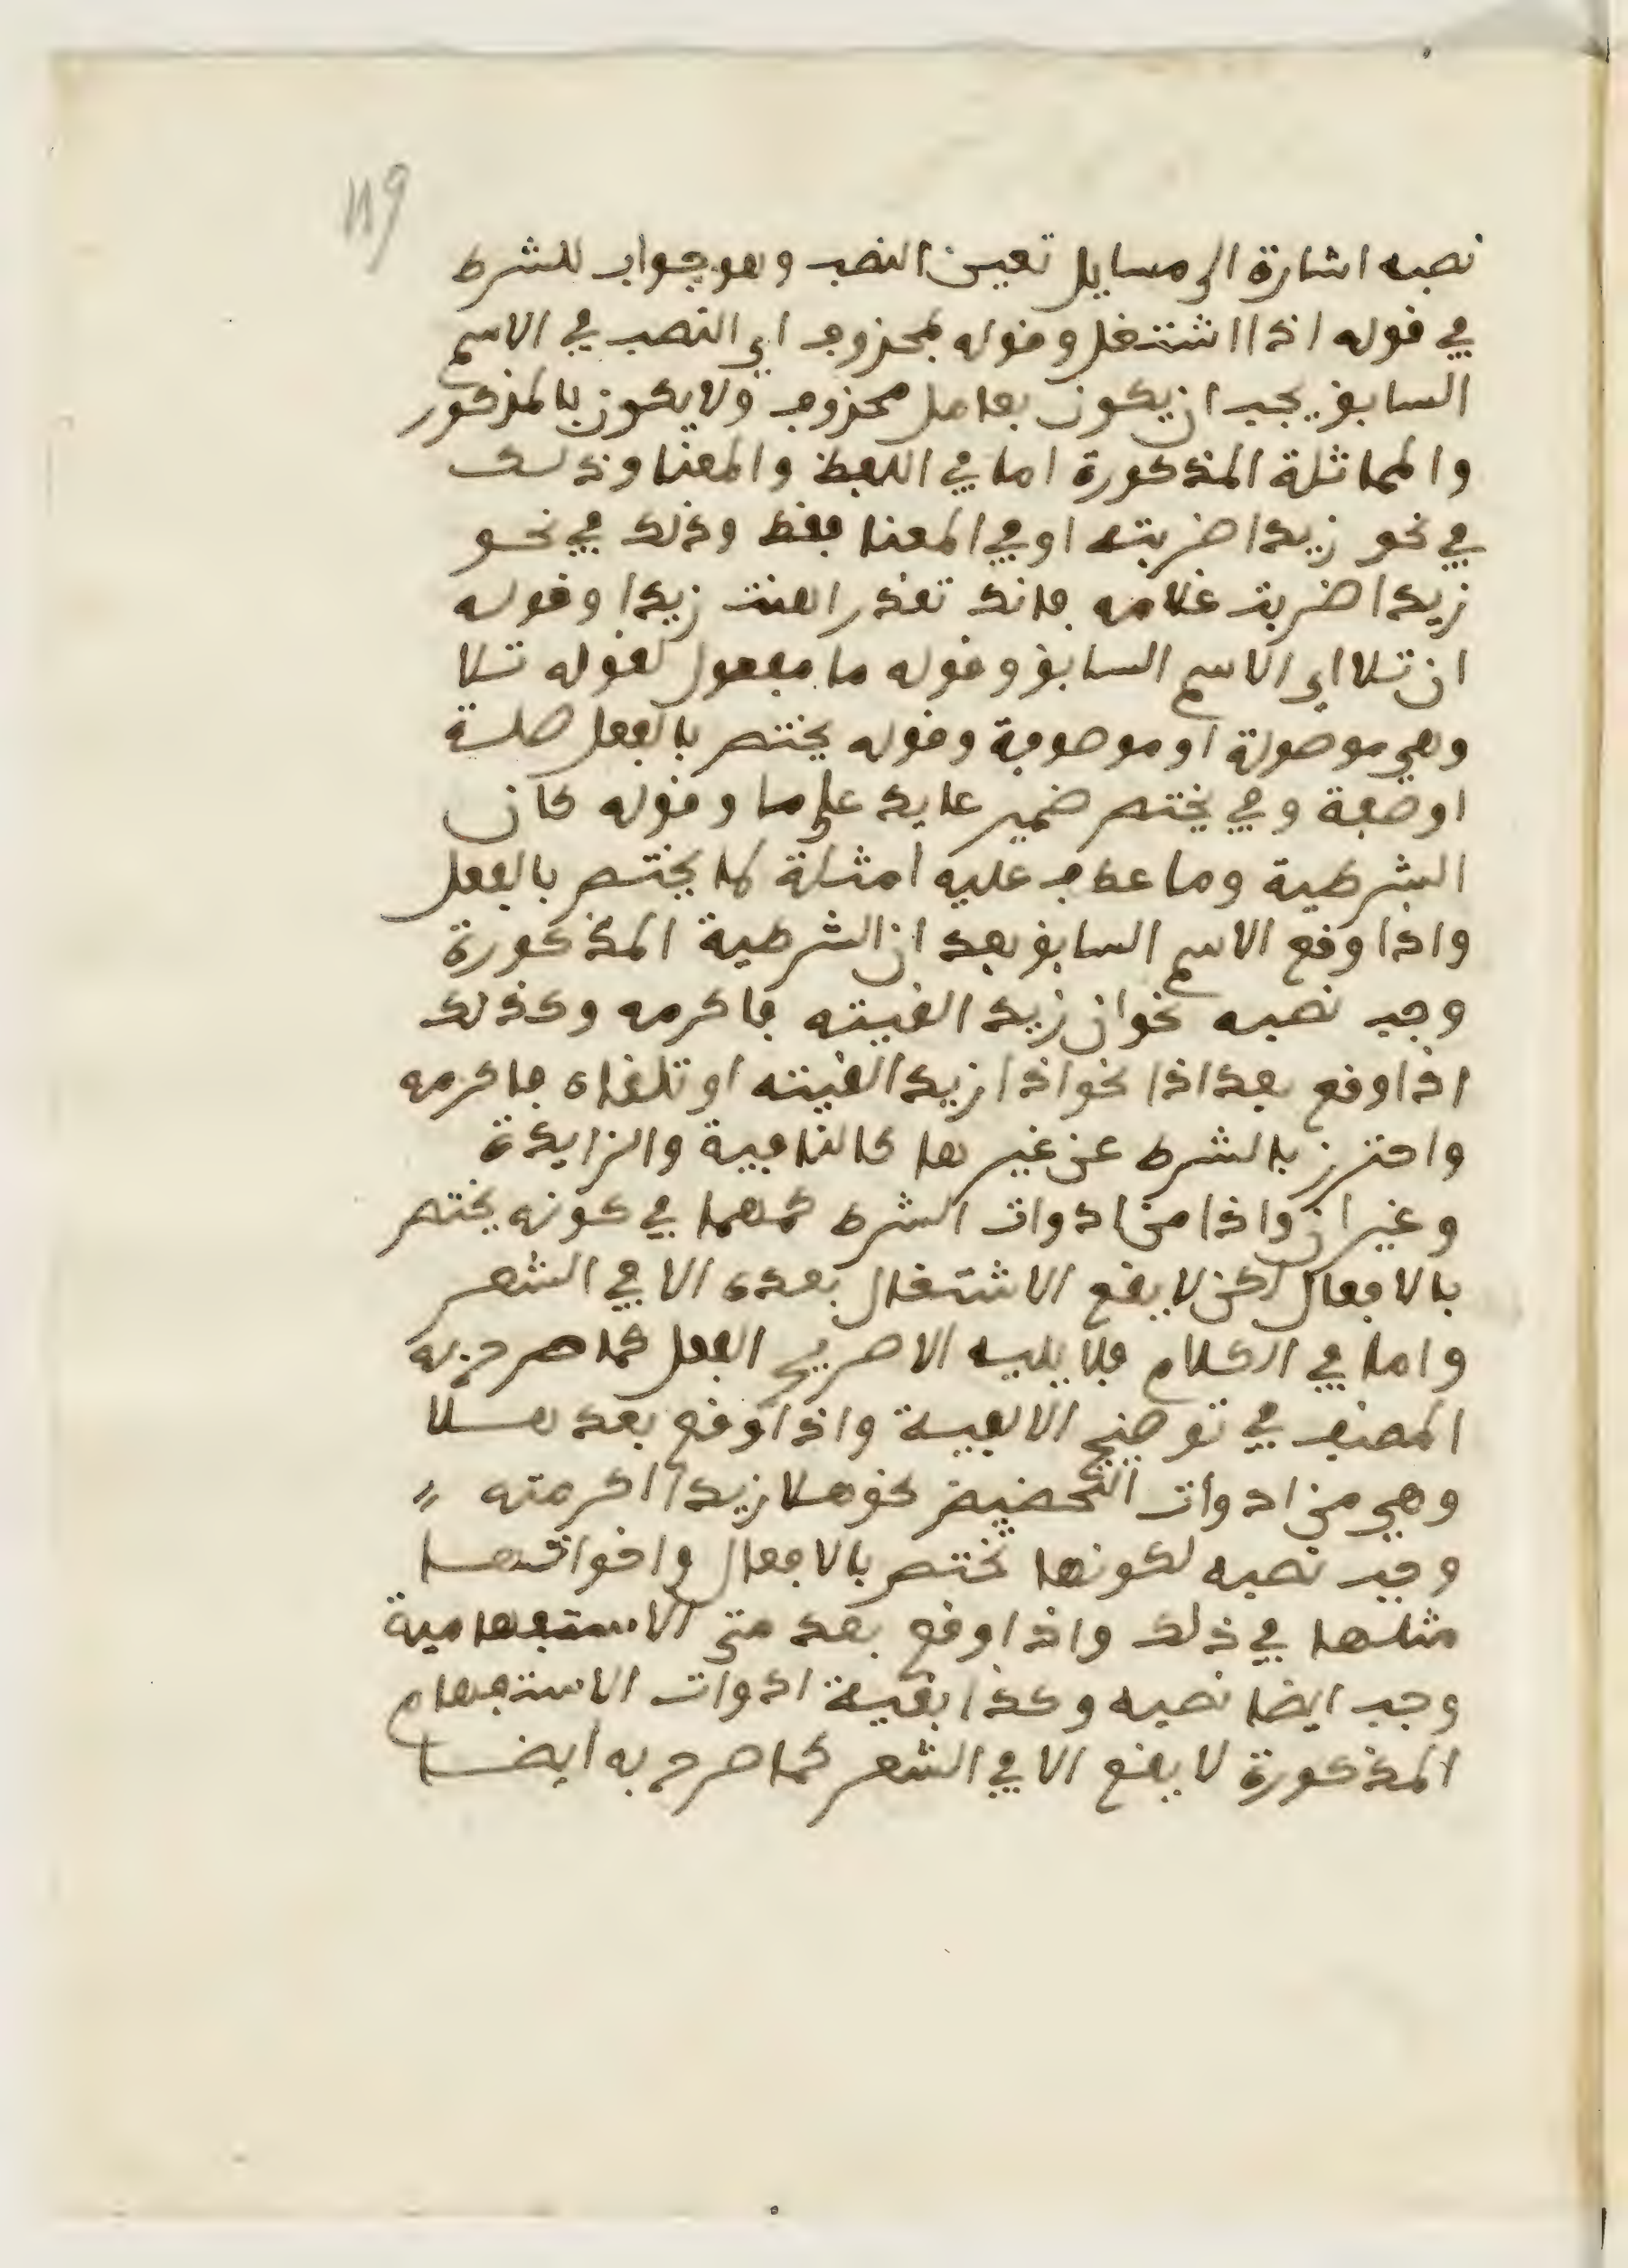 119
نصبه اشارة الى مسايل تعين النصب وهو جواب للشرط
في قوله اذا اشتغل وقوله بمحذوف اي النصب في الاسم
السابق يجب ان يكون بعامل محذوف ولا يكون بالمذكور
والمماثلة المذكورة اما في اللفظ والمعنا وذلك
في نحو زيدا ضربته او في المعنا فقط وذلك في نحو
زيدا ضربت غلامه فانك تقدر اهنت زيدا وقوله
ان تلا اي الاسم السابق وقوله ما مفعول لقوله تلا
وهي موصولة او موصوفة وقوله يختص بالفعل صلة
او صفة وفي يختص ضمير عايد على ما وقوله كان
الشرطية وما عطف عليه امثلة لما يختص بالفعل
واذا وقع الاسم السابق بعد ان الشرطية المذكورة
وجب نصبه نحو ان زيدا لقيته فاكرمه وكذلك
اذا وقع بعد اذا نحو اذا زيدا لقيته او تلقاه فاكرمه
واحترز بالشرط عن غيرها كالنافية والزايدة
وغير ان واذا من ادوات الشرط كمهما في كونه يختص
بالافعال لكن لا يقع الاشتغال بعده الا في الشعر
واما في الكلام فلا يليه الا صريح الفعل كما صرح به
المصنف في توضيح الالفية واذا وقع بعد هلا
وهي من ادوات التحضيض نحو هلا زيدا اكرمته
وجب نصبه لكونها تختص بالافعال واخواتها
مثلها في ذلك واذا وقع بعد متى الاستفهامية
وجب ايضا نصبه وكذا بقية ادوات الاستفهام
المذكورة لا يقع الا في الشعر كما صرح به ايضا